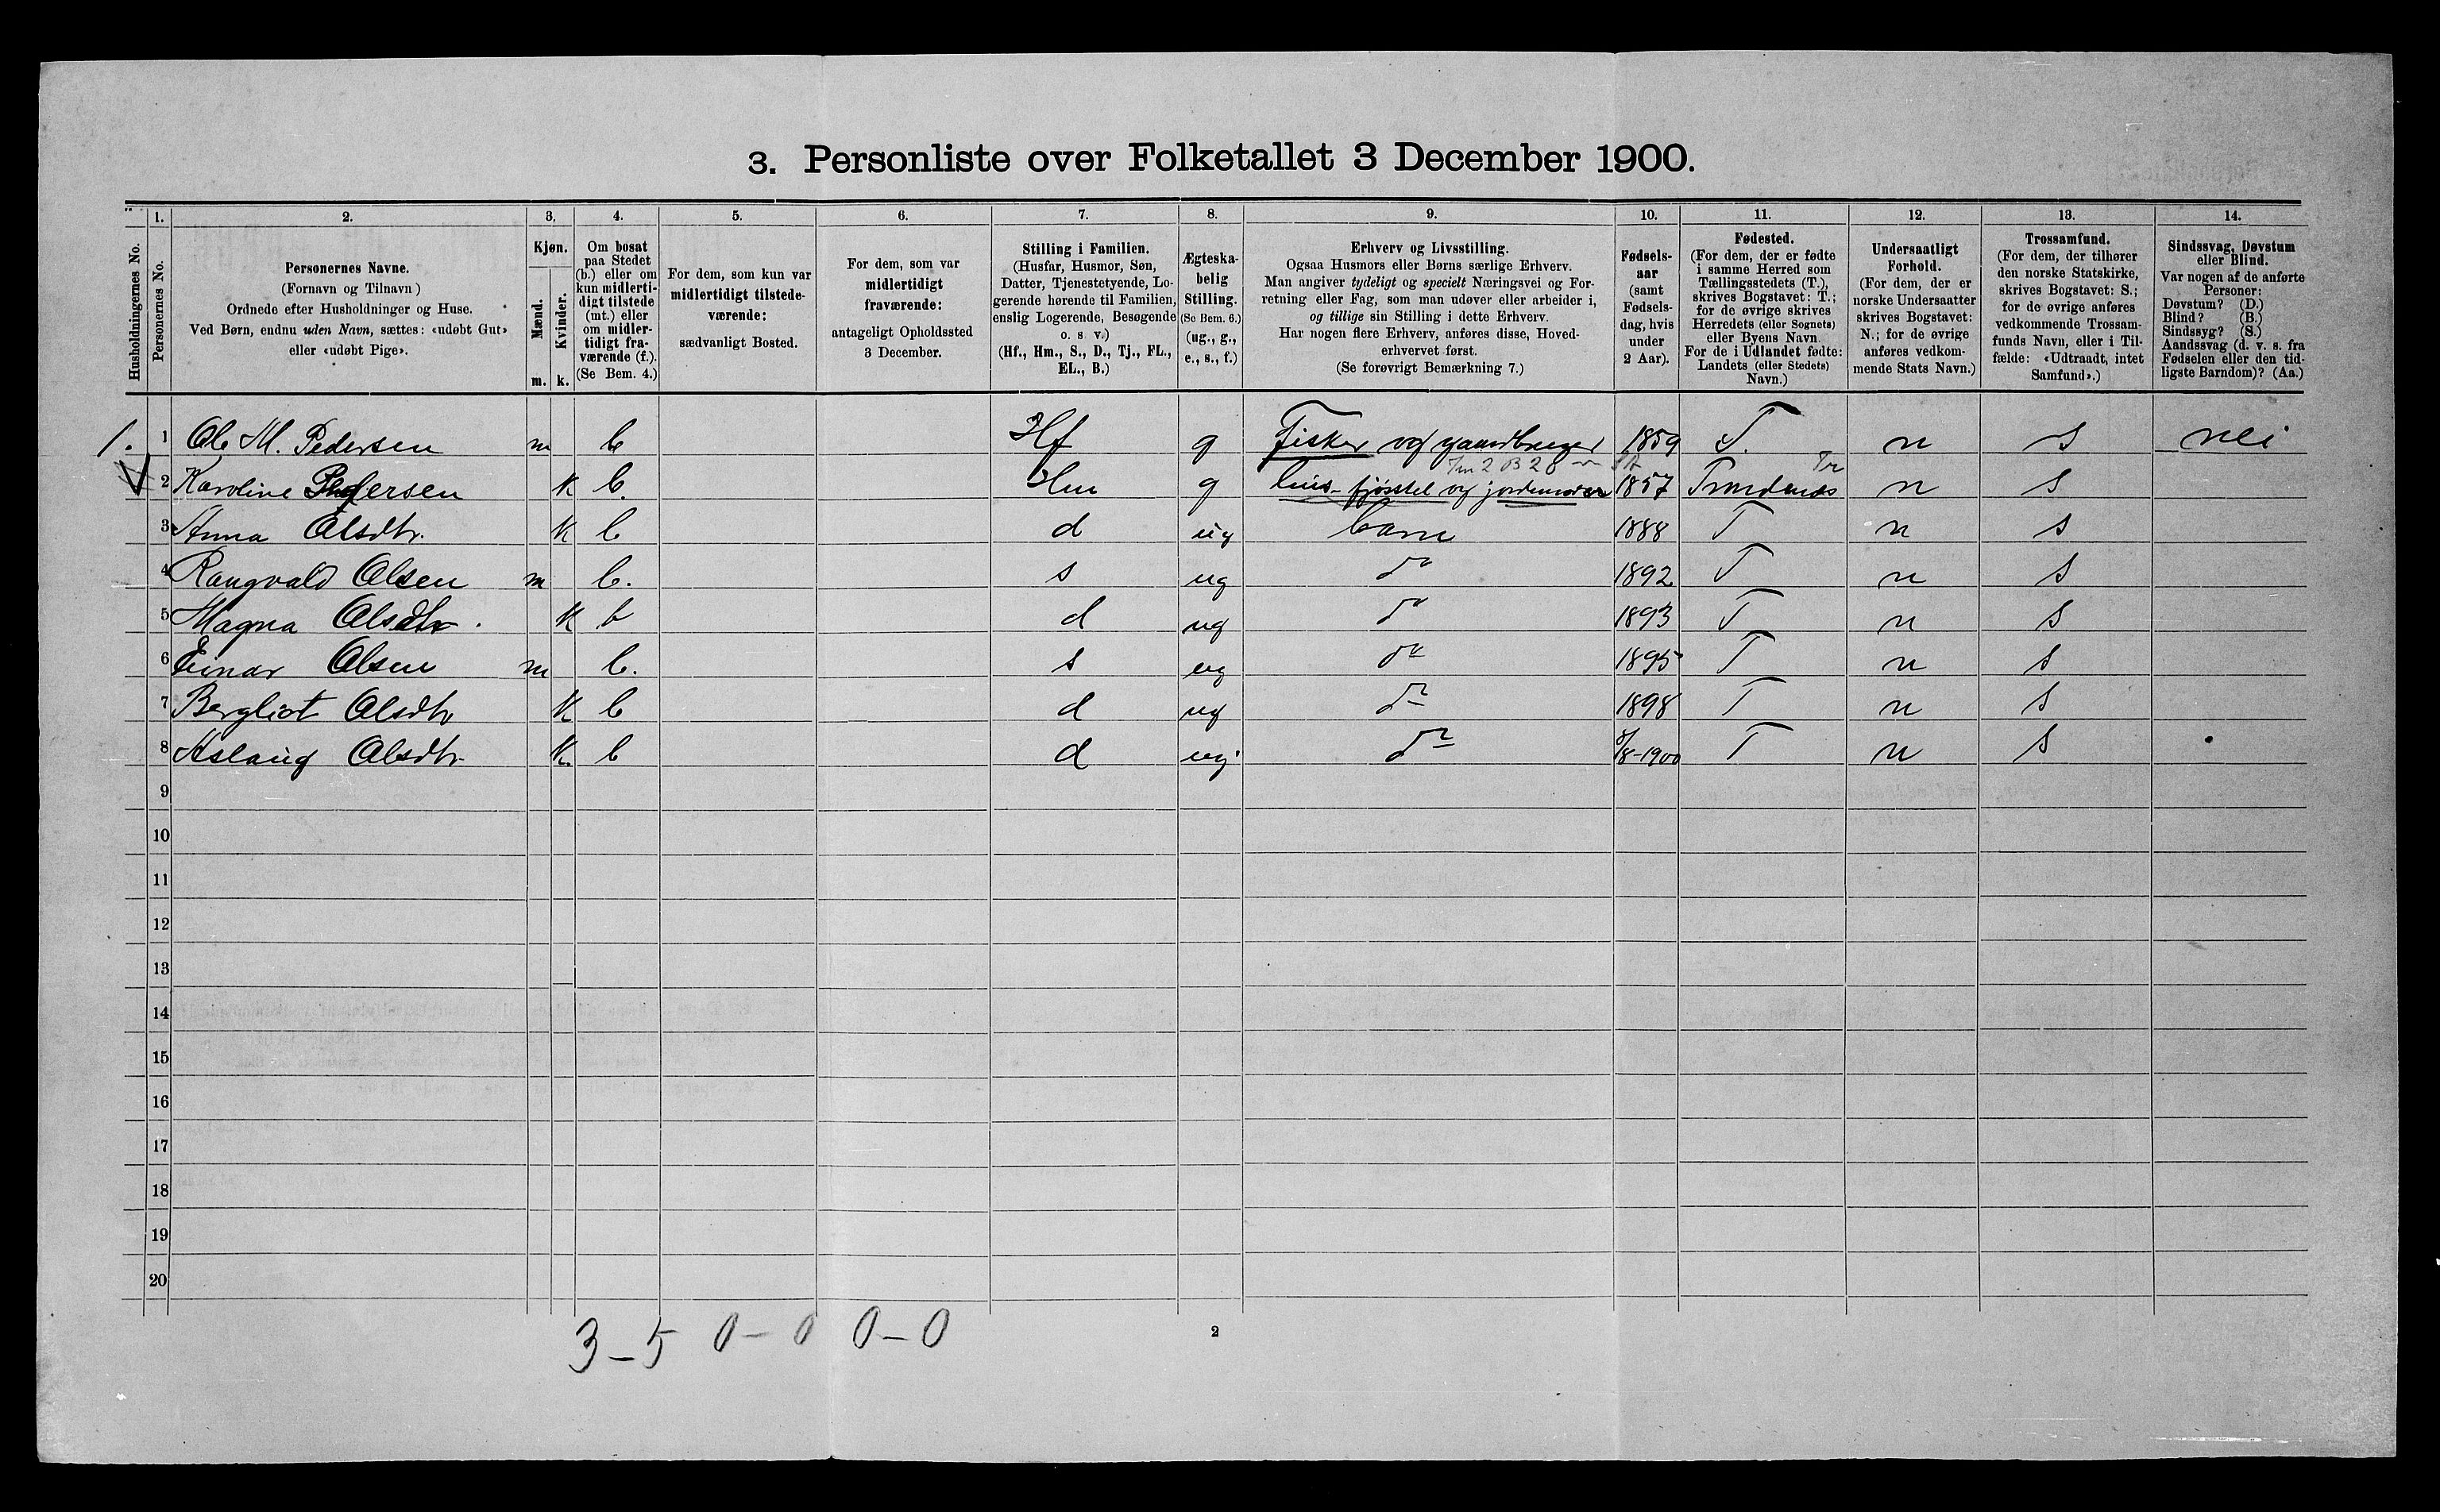 3. Personliste over Folketallet 3 December 1900.
1. 2. 3. 4. 5. 6. 7. 8. 9. 10. 11. 12. 13. 14.
Husholdningernes No.
Personernes No.
Personernes Navne.
(Fornavn og Tilnavn)
Ordnede efter Husholdninger og Huse.
Ved Børn, endnu uden Navn, sættes: «udøbt Gut»
eller «udøbt Pige».
Kjøn.
Mænd.
Kvinder.
m. k.
Om bosat
paa Stedet
(b.) eller om
kun midlerti-
digt tilstede
(mt.) eller
om midler-
tidigt fra-
værende (f.).
(Se Bem. 4.)
For dem, som kun var
midlertidigt tilstede-
værende:
sædvanligt Bosted.
For dem, som var
midlertidigt
fraværende:
antageligt Opholdssted
3 December.
Stilling i Familien.
(Husfar, Husmor, Søn,
Datter, Tjenestetyende, Lo-
gerende hørende til Familien,
enslig Logerende, Besøgende
o. s. v.)
(Hf., Hm., S., D., Tj., FL.,
EL., B.)
Ægteska-
belig
Stilling.
(Se Bem. 6.)
(ug., g.,
e., s., f.)
Erhverv og Livsstilling.
Ogsaa Husmors eller Børns særlige Erhverv.
Man angiver tydeligt og specielt Næringsvei og For-
retning eller Fag, som man udøver eller arbeider i,
og tillige sin Stilling i dette Erhverv.
Har nogen flere Erhverv, anføres disse, Hoved-
erhvervet først.
(Se forøvrigt Bemærkning 7.)
Fødsels-
aar
(samt
Fødsels-
dag, hvis
under
2 Aar).
Fødested.
(For dem, der er fødte
i samme Herred som
Tællingsstedets (T.),
skrives Bogstavet: T.;
for de øvrige skrives
Herredets (eller Sognets)
eller Byens Navn.
For de i Udlandet fødte:
Landets (eller Stedets)
Navn.)
Undersaatligt
Forhold.
(For dem, der er
norske Undersaatter
skrives Bogstavet:
N.; for de øvrige
anføres vedkom-
mende Stats Navn.)
Trossamfund.
(For dem, der tilhører
den norske Statskirke,
skrives Bogstavet: S.;
for de øvrige anføres
vedkommende Trossam-
funds Navn, eller i Til-
fælde: «Udtraadt, intet
Samfund».)
Sindssvag, Døvstum
eller Blind.
Var nogen af de anførte
Personer:
Døvstum? (D.)
Blind? (B.)
Sindssyg? (S.)
Aandssvag (d. v. s. fra
Fødselen eller den tid-
ligste Barndom)? (Aa.)
1. 1 Ole M. Pedersen m b Hf g Fisker og gaardbruger 1859 T. n S nei
2 Karoline Pedersen k b. Hm g hus- fjøsstel og jordemoder 1857 Trondenes Tr n S
3 Anna Olsdtr. k b d ug barn 1888 T n S
4 Rangvald Olsen m b. s ug do 1892 T n S
5 Magna Olsdtr. k b d ug do 1893 T n S
6 Einar Olsen m b. s ug do 1895 T n S
7 Bergliot Olsdtr k b d ug do 1898 T n S
8 Aslaug Olsdtr k. b d ug do 8/8-1900 T n S
9
10
11
12
13
14
15
16
17
18
19
20
3-5 0-0 0-0
2